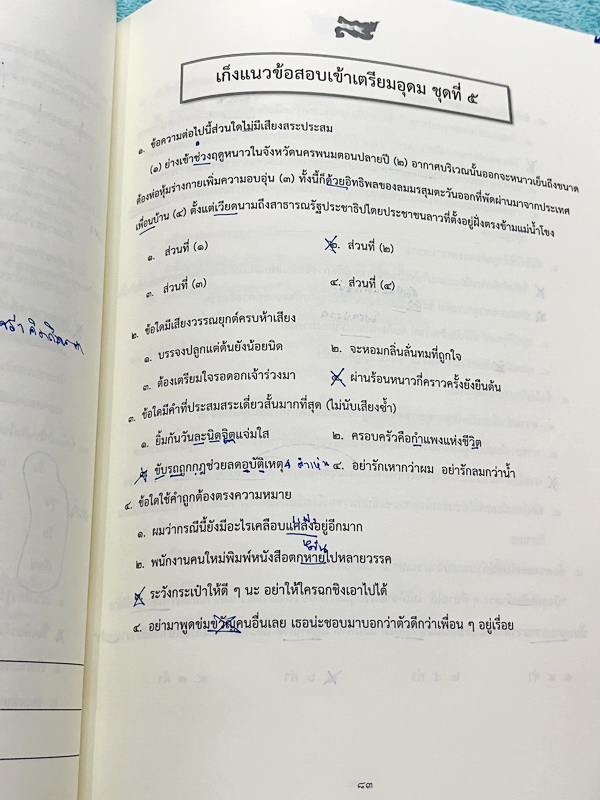 เก็งแนวข้อสอบเข้าเตรียมอุดม ชุดที่ ๕
๑. ข้อความต่อไปนี้ส่วนใดไม่มีเสียงสระประสม
(๑) ย่างเข้าช่วงฤดูหนาวในจังหวัดนครพนมตอนปลายปี (๒) อากาศบริเวณนั้นออกจะหนาวเย็นถึงขนาด
ต้องห่อหุ้มร่างกายเพิ่มความอบอุ่น (๓) ทั้งนี้ก็ด้วยอิทธิพลของลมมรสุมตะวันออกที่พัดผ่านมาจากประเทศ
เพื่อนบ้าน (๔) ตั้งแต่เวียดนามถึงสาธารณรัฐประชาธิปไตยประชาชนลาวที่ตั้งอยู่ฝั่งตรงข้ามแม่น้ำโขง
๑. ส่วนที่ (๑) ๒. ส่วนที่ (๒)
๓. ส่วนที่ (๓) ๔. ส่วนที่ (๔)
๒. ข้อใดมีเสียงวรรณยุกต์ครบห้าเสียง
๑. บรรจงปลูกแต่ต้นยังน้อยนิด ๒. จะหอมกลิ่นลั่นทมที่ถูกใจ
๓. ต้องเตรียมใจรอดอกเจ้าร่วงมา ๔. ผ่านร้อนหนาวกี่คราวครั้งยังยืนต้น
๓. ข้อใดมีคำที่ประสมสระเดี่ยวสั้นมากที่สุด (ไม่นับเสียงซ้ำ)
๑. ยิ้มกันวันละนิดจิตแจ่มใส ๒. ครอบครัวคือกำแพงแห่งชีวิต
๓. ขับรถถูกกฎช่วยลดอุบัติเหตุ ๔. อย่ารักเหากว่าผม อย่ารักลมกว่าน้ำ
๔. ข้อใดใช้คำถูกต้องตรงความหมาย
๑. ผมว่ากรณีนี้ยังมีอะไรเคลือบแคลงอยู่อีกมาก
๒. พนักงานคนใหม่พิมพ์หนังสือตกหายไปหลายวรรค
๓. ระวังกระเป๋าให้ดี ๆ นะ อย่าให้ใครฉกชิงเอาไปได้
๔. อย่ามาพูดข่มขวัญคนอื่นเลย เธอน่ะชอบมาบอกว่าตัวดีกว่าเพื่อน ๆ อยู่เรื่อย
๘๓